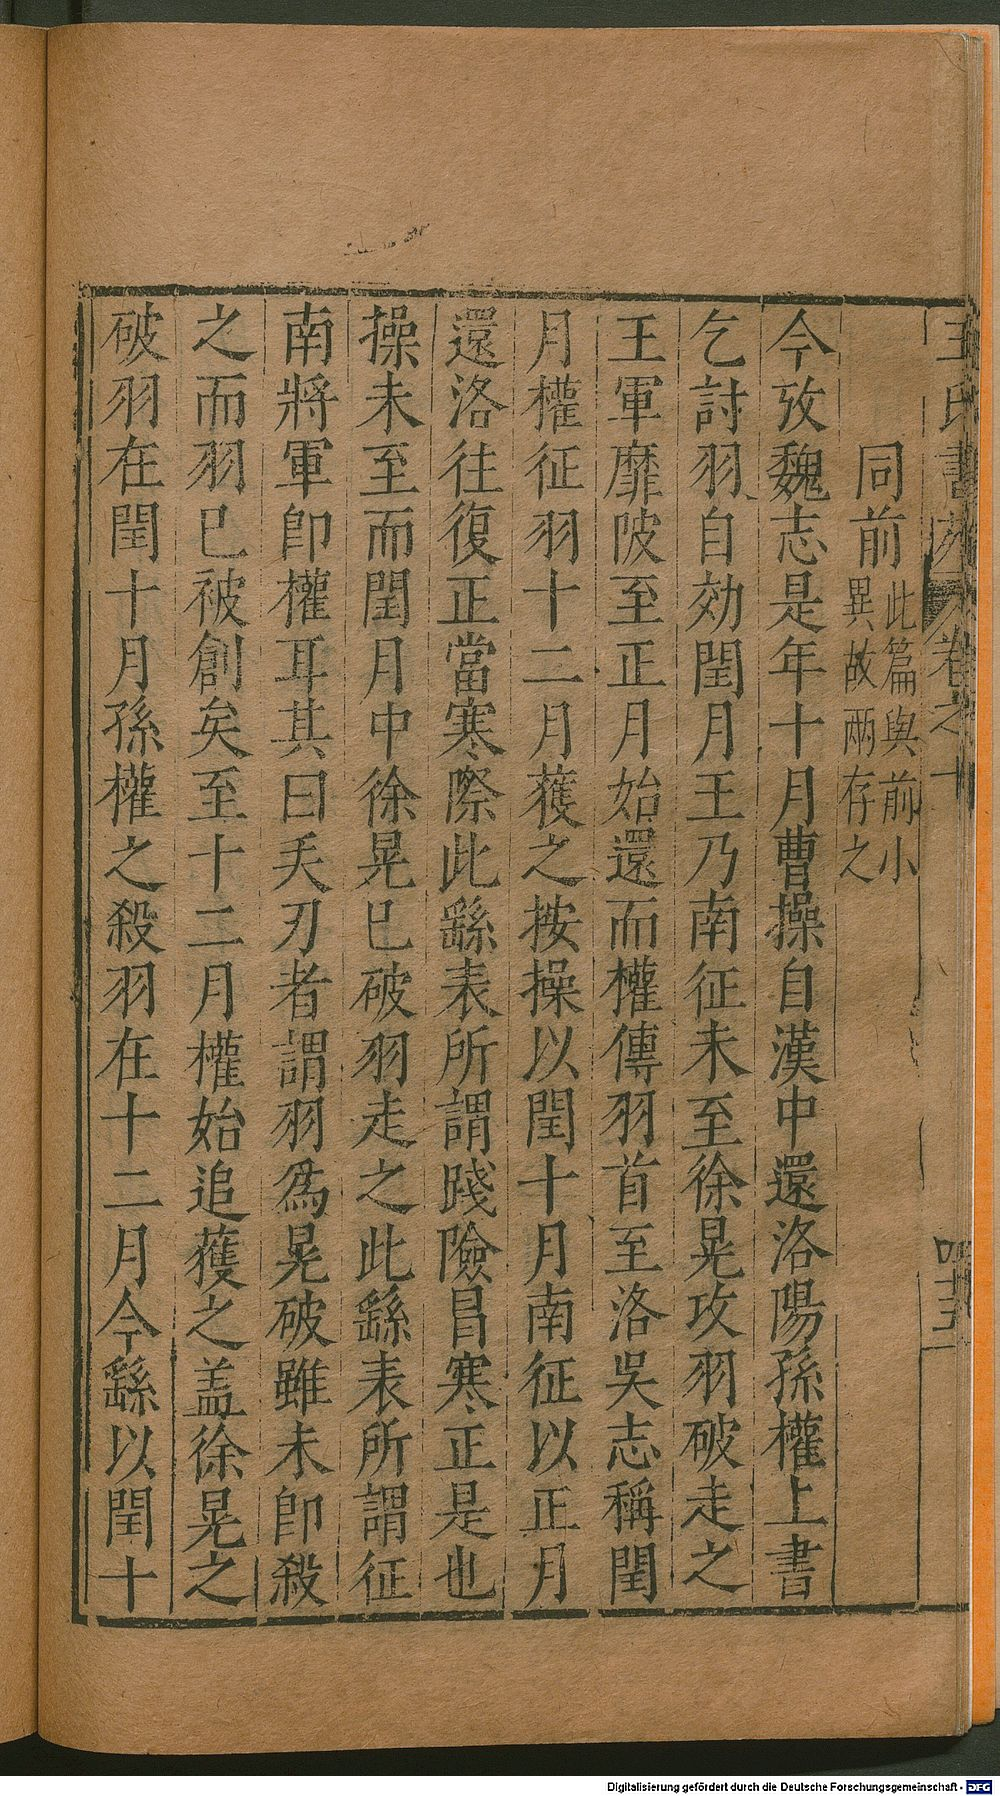 王氏書苑卷之十
四十五
同前此篇與前小
異故兩存之
今攷魏志是年十月曹操自漢中還洛陽孫權上書
乞討羽自効閏月王乃南征未至徐晃攻羽破走之
王軍靡陂至正月始還而權傳羽首至洛吳志稱閏
月權征羽十二月獲之按操以閏十月南征以正月
還洛往復正當寒際此繇表所謂踐險冒寒正是也
操未至而閏月中徐晃已破羽走之此繇表所謂征
南將軍卽權耳其曰夭刃者謂羽爲晃破雖未卽殺
之而羽已被創矣至十二月權始追獲之盖徐晃之
破羽在閏十月孫權之殺羽在十二月今繇以閏十
Digitalisierung gefördert durch die Deutsche Forschungsgemeinschaft - DFG